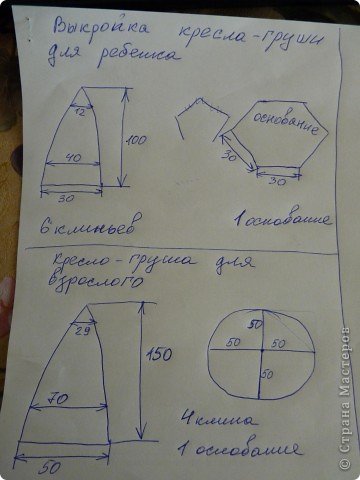 Выкройка кресла-груши
для ребенка
12
100
40
30
6 клиньев
основание
30
30
1 основание
Кресло-груша для
взрослого
29
150
70
50
50
50
50
50
4 клина
1 основание
© Страна Мастеров